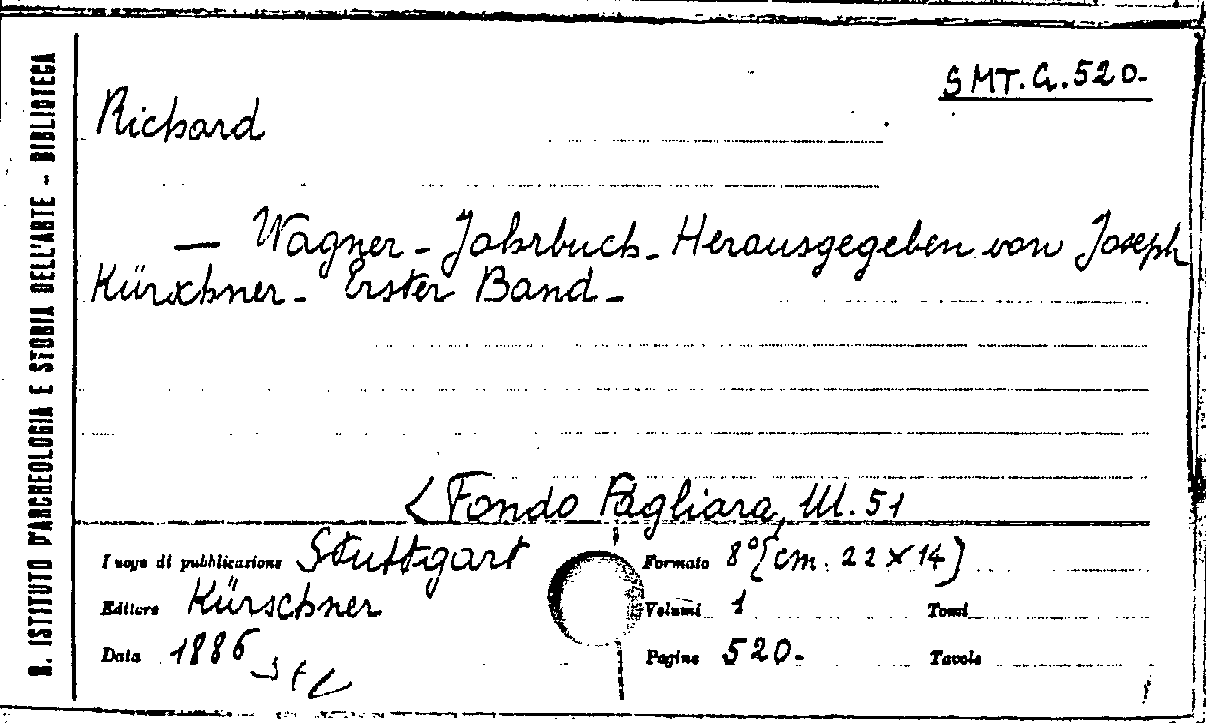 R. ISTITUTO D'ARCHEOLOGIA E STORIA DELL'ARTE - BIBLIOTECA
SMT.G.520-
Richard
— Wagner-Jahrbuch- Herausgegeben von Joseph
Kürschner- Erster Band-
<Fondo Pagliara, III. 51
Luogo di pubblicazione Stuttgart
Editore Kürschner
Data 1886
Formato 8° [cm. 22 x 14]
Volumi 1 Tomi
Pagine 520- Tavole